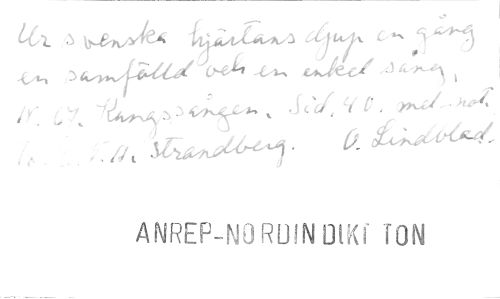 Ur svenska hjärtans djup en gång
en samfälld och en enkel sång,
N. 67. Kungssången. Sid. 40. med not.
C. V. A. Strandberg. O. Lindblad.
ANREP-NORDIN DIKT TON